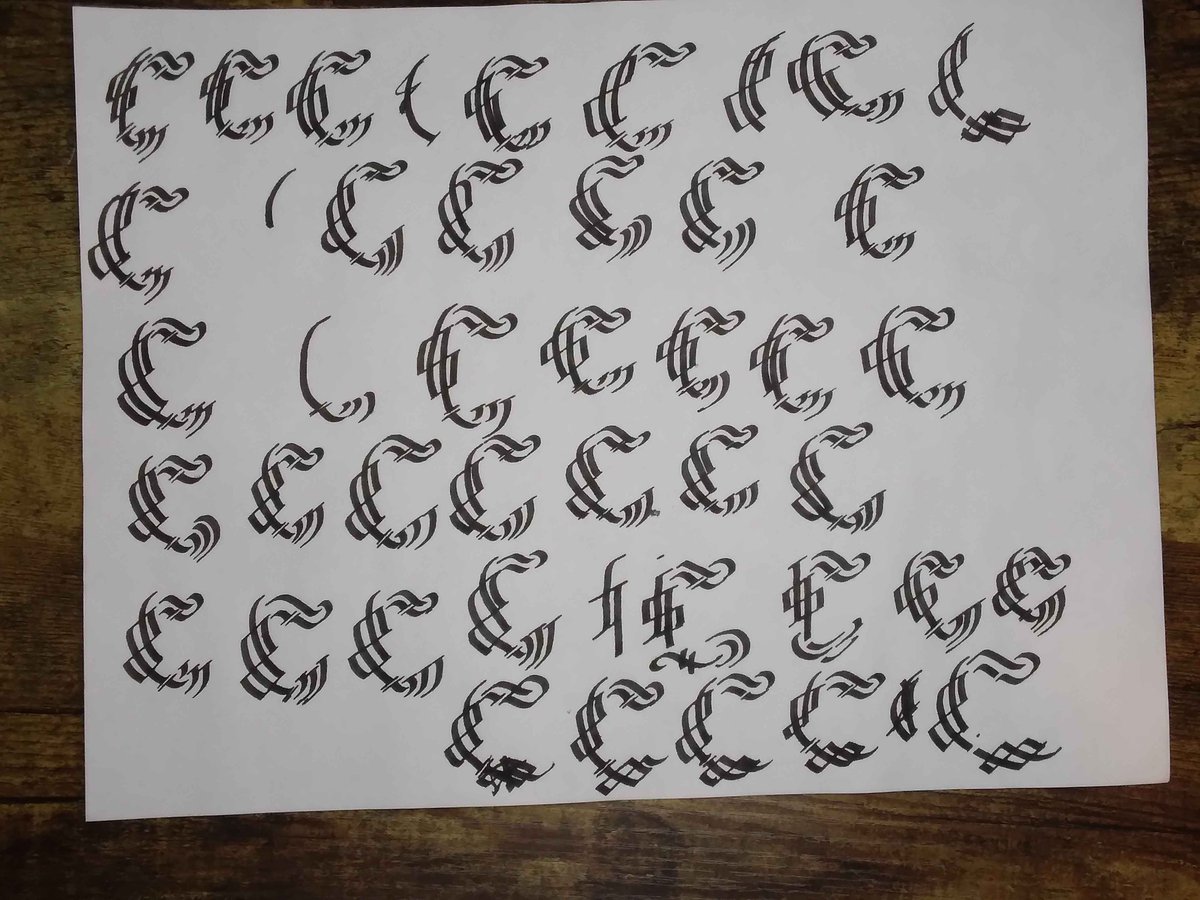 C C C C C C
C C C C C C
C C C C C C
C C C C C C C
C C C C C C C C
C C C C C